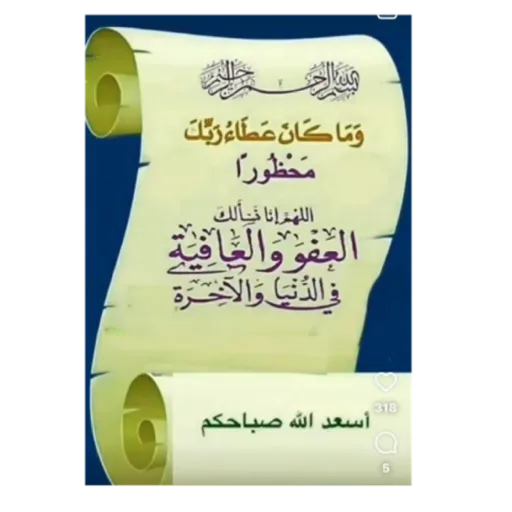 بسم الله الرحمن الرحيم
وَمَا كَانَ عَطَاءُ رَبِّكَ
مَحْظُورًا
اللهم إنا نسألك
العفو والعافية
في الدنيا والآخرة
أسعد الله صباحكم
318
5